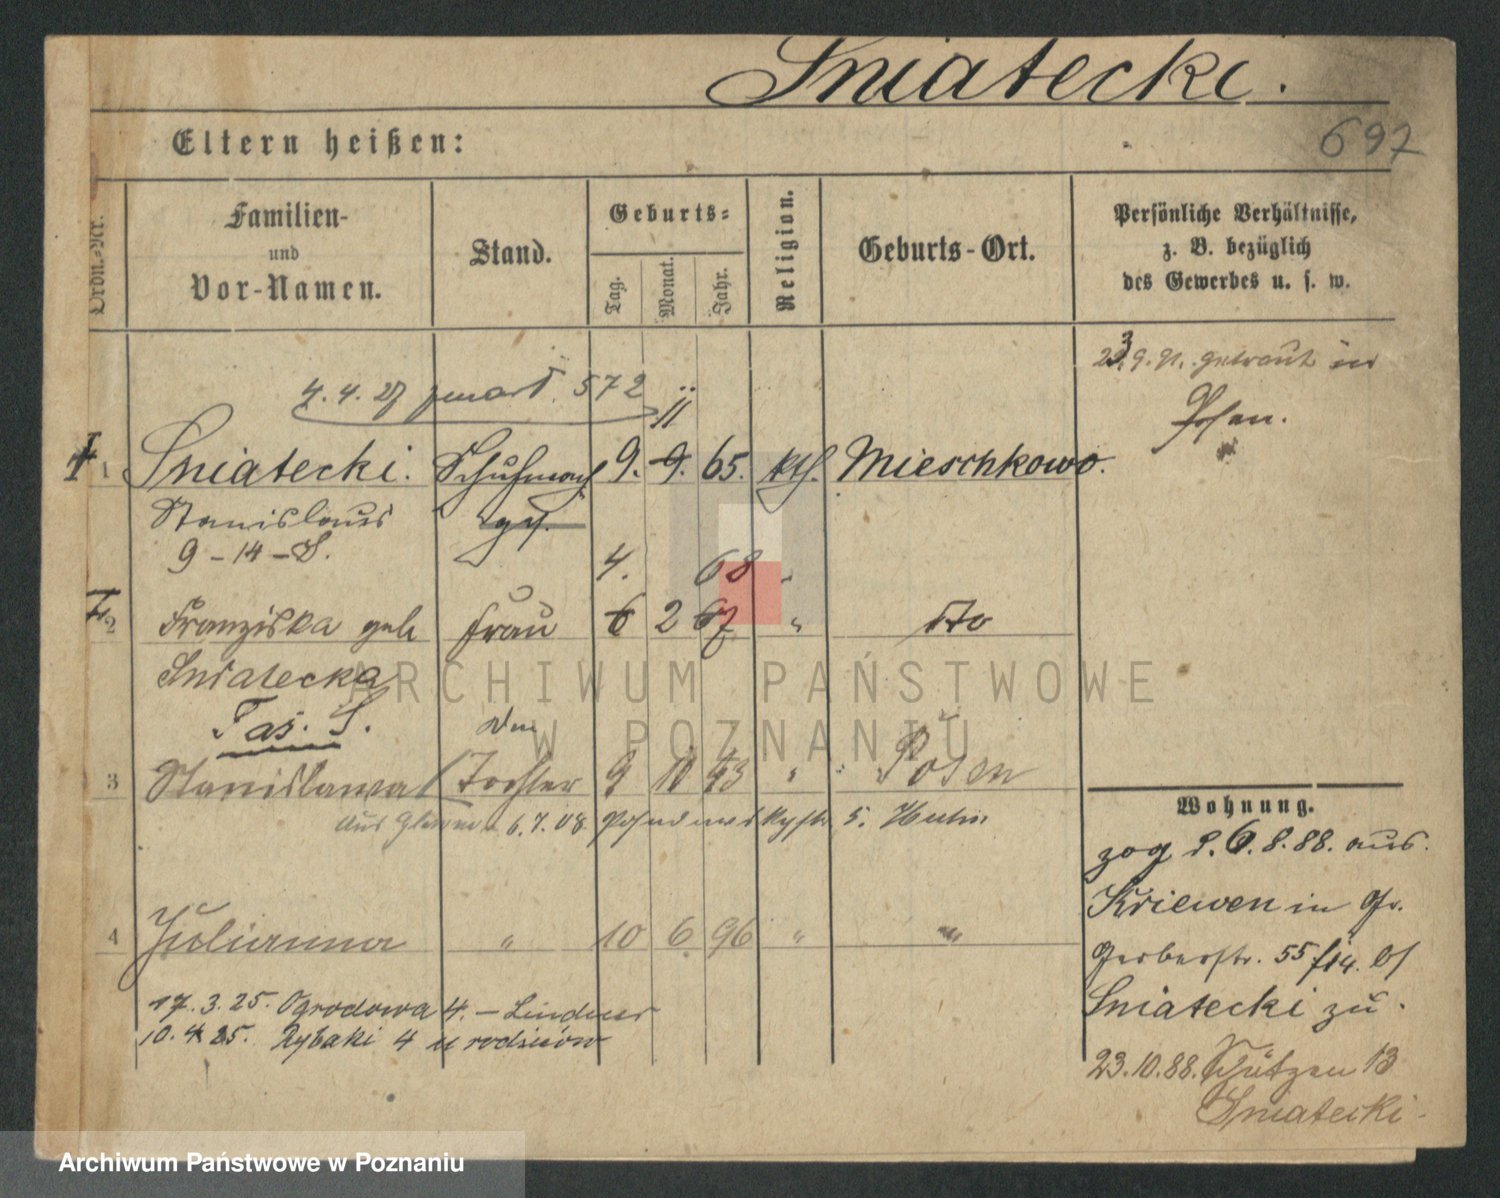 Sniatecki.
697
Eltern heißen:
Ordn.-Nr.
Familien-
und
Vor-Namen.
Stand.
Geburts-
Tag.
Monat.
Jahr.
Religion.
Geburts-Ort.
Persönliche Verhältnisse,
z. B. bezüglich
des Gewerbes u. s. w.
23.9.91. getraut in
Posen.
4. 4. 27 zmarł 572
11
1 Sniatecki. Schuhmach 9. 9. 65. kth. Mieschkowo.
Stanislaus ges.
9-14-S.
4. 68 "
2 Franziska geb Frau 6 2 67 " dto
Sniatecka
Tas. S.
3 Stanislawa Tochter 9 10 93 " Posen
aus 6.7.08
4 Julianna " 10 6 96 " "
17.3.25. Ogrodowa 4. – Lindner
10.4.25. Rybaki 4 u rodziców
Wohnung.
zog d. 6.8.88. aus
Kriewen in Gr.
Gerberstr. 55 bei
Sniatecki zu.
23.10.88. Schützen 13
Sniatecki.
ARCHIWUM PAŃSTWOWE
W POZNANIU
Archiwum Państwowe w Poznaniu